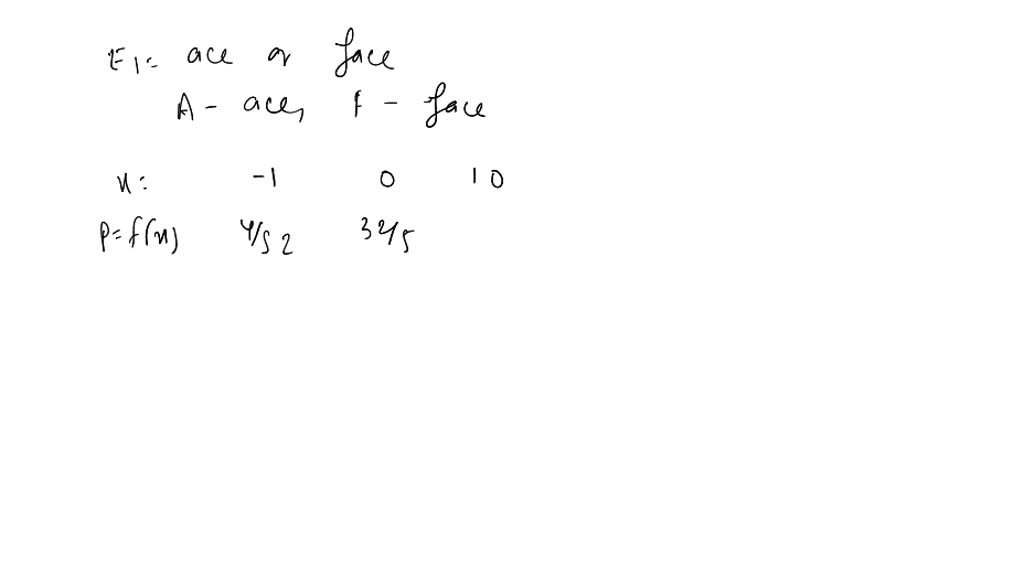 E1= ace or face
A - ace, F - face
x: -1 0 10
P=f(x) 4/52 32/5